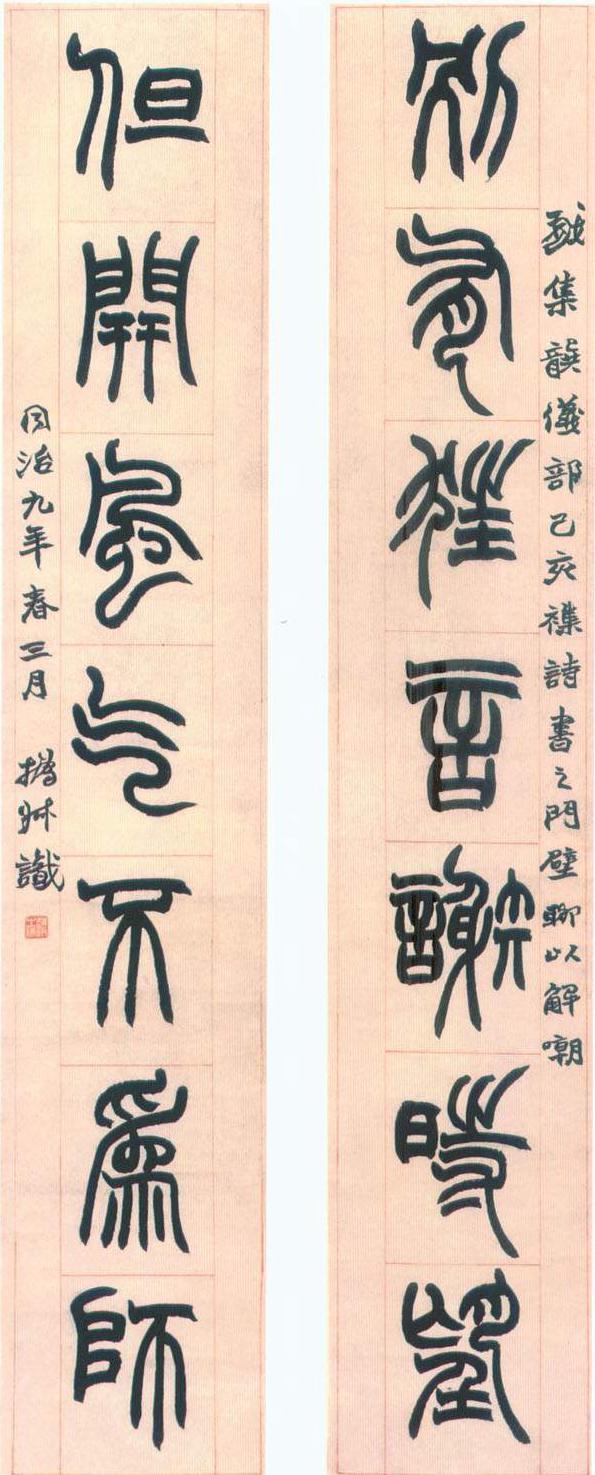 戲集龔儀部己亥襍詩書之門壁聊以解嘲
別有狂言謝時望
但開風气不爲師
同治九年春三月 撝叔識